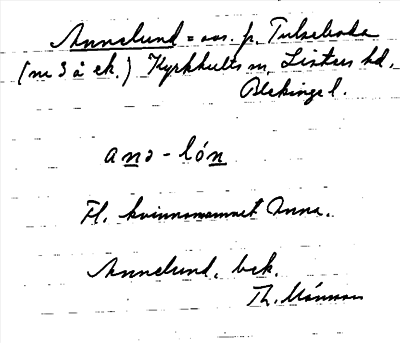 Annelund = avs. p. Tulseboda
(nr 3 å ek.) Kyrkhults sn, Listers hd,
Blekinge l.
anə - lón
Fl. kvinnonamnet Anna.
Annelund, bek.
Th. Månsson